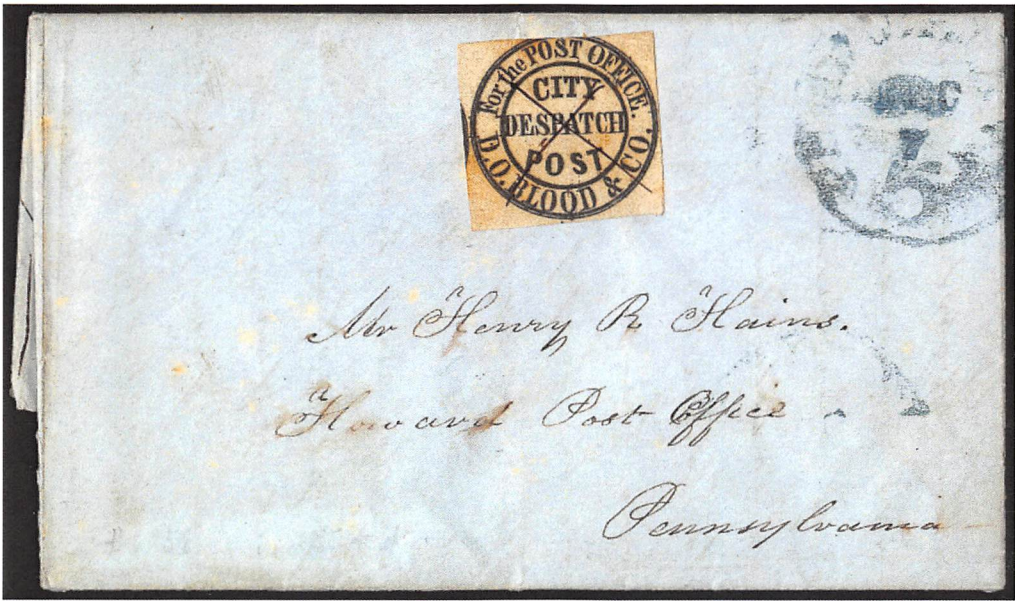 For the POST OFFICE.
CITY
DESPATCH
POST
D.O. BLOOD & CO.
5
Mr Henry R Hains.
Howard Post Office
Pennsylvania